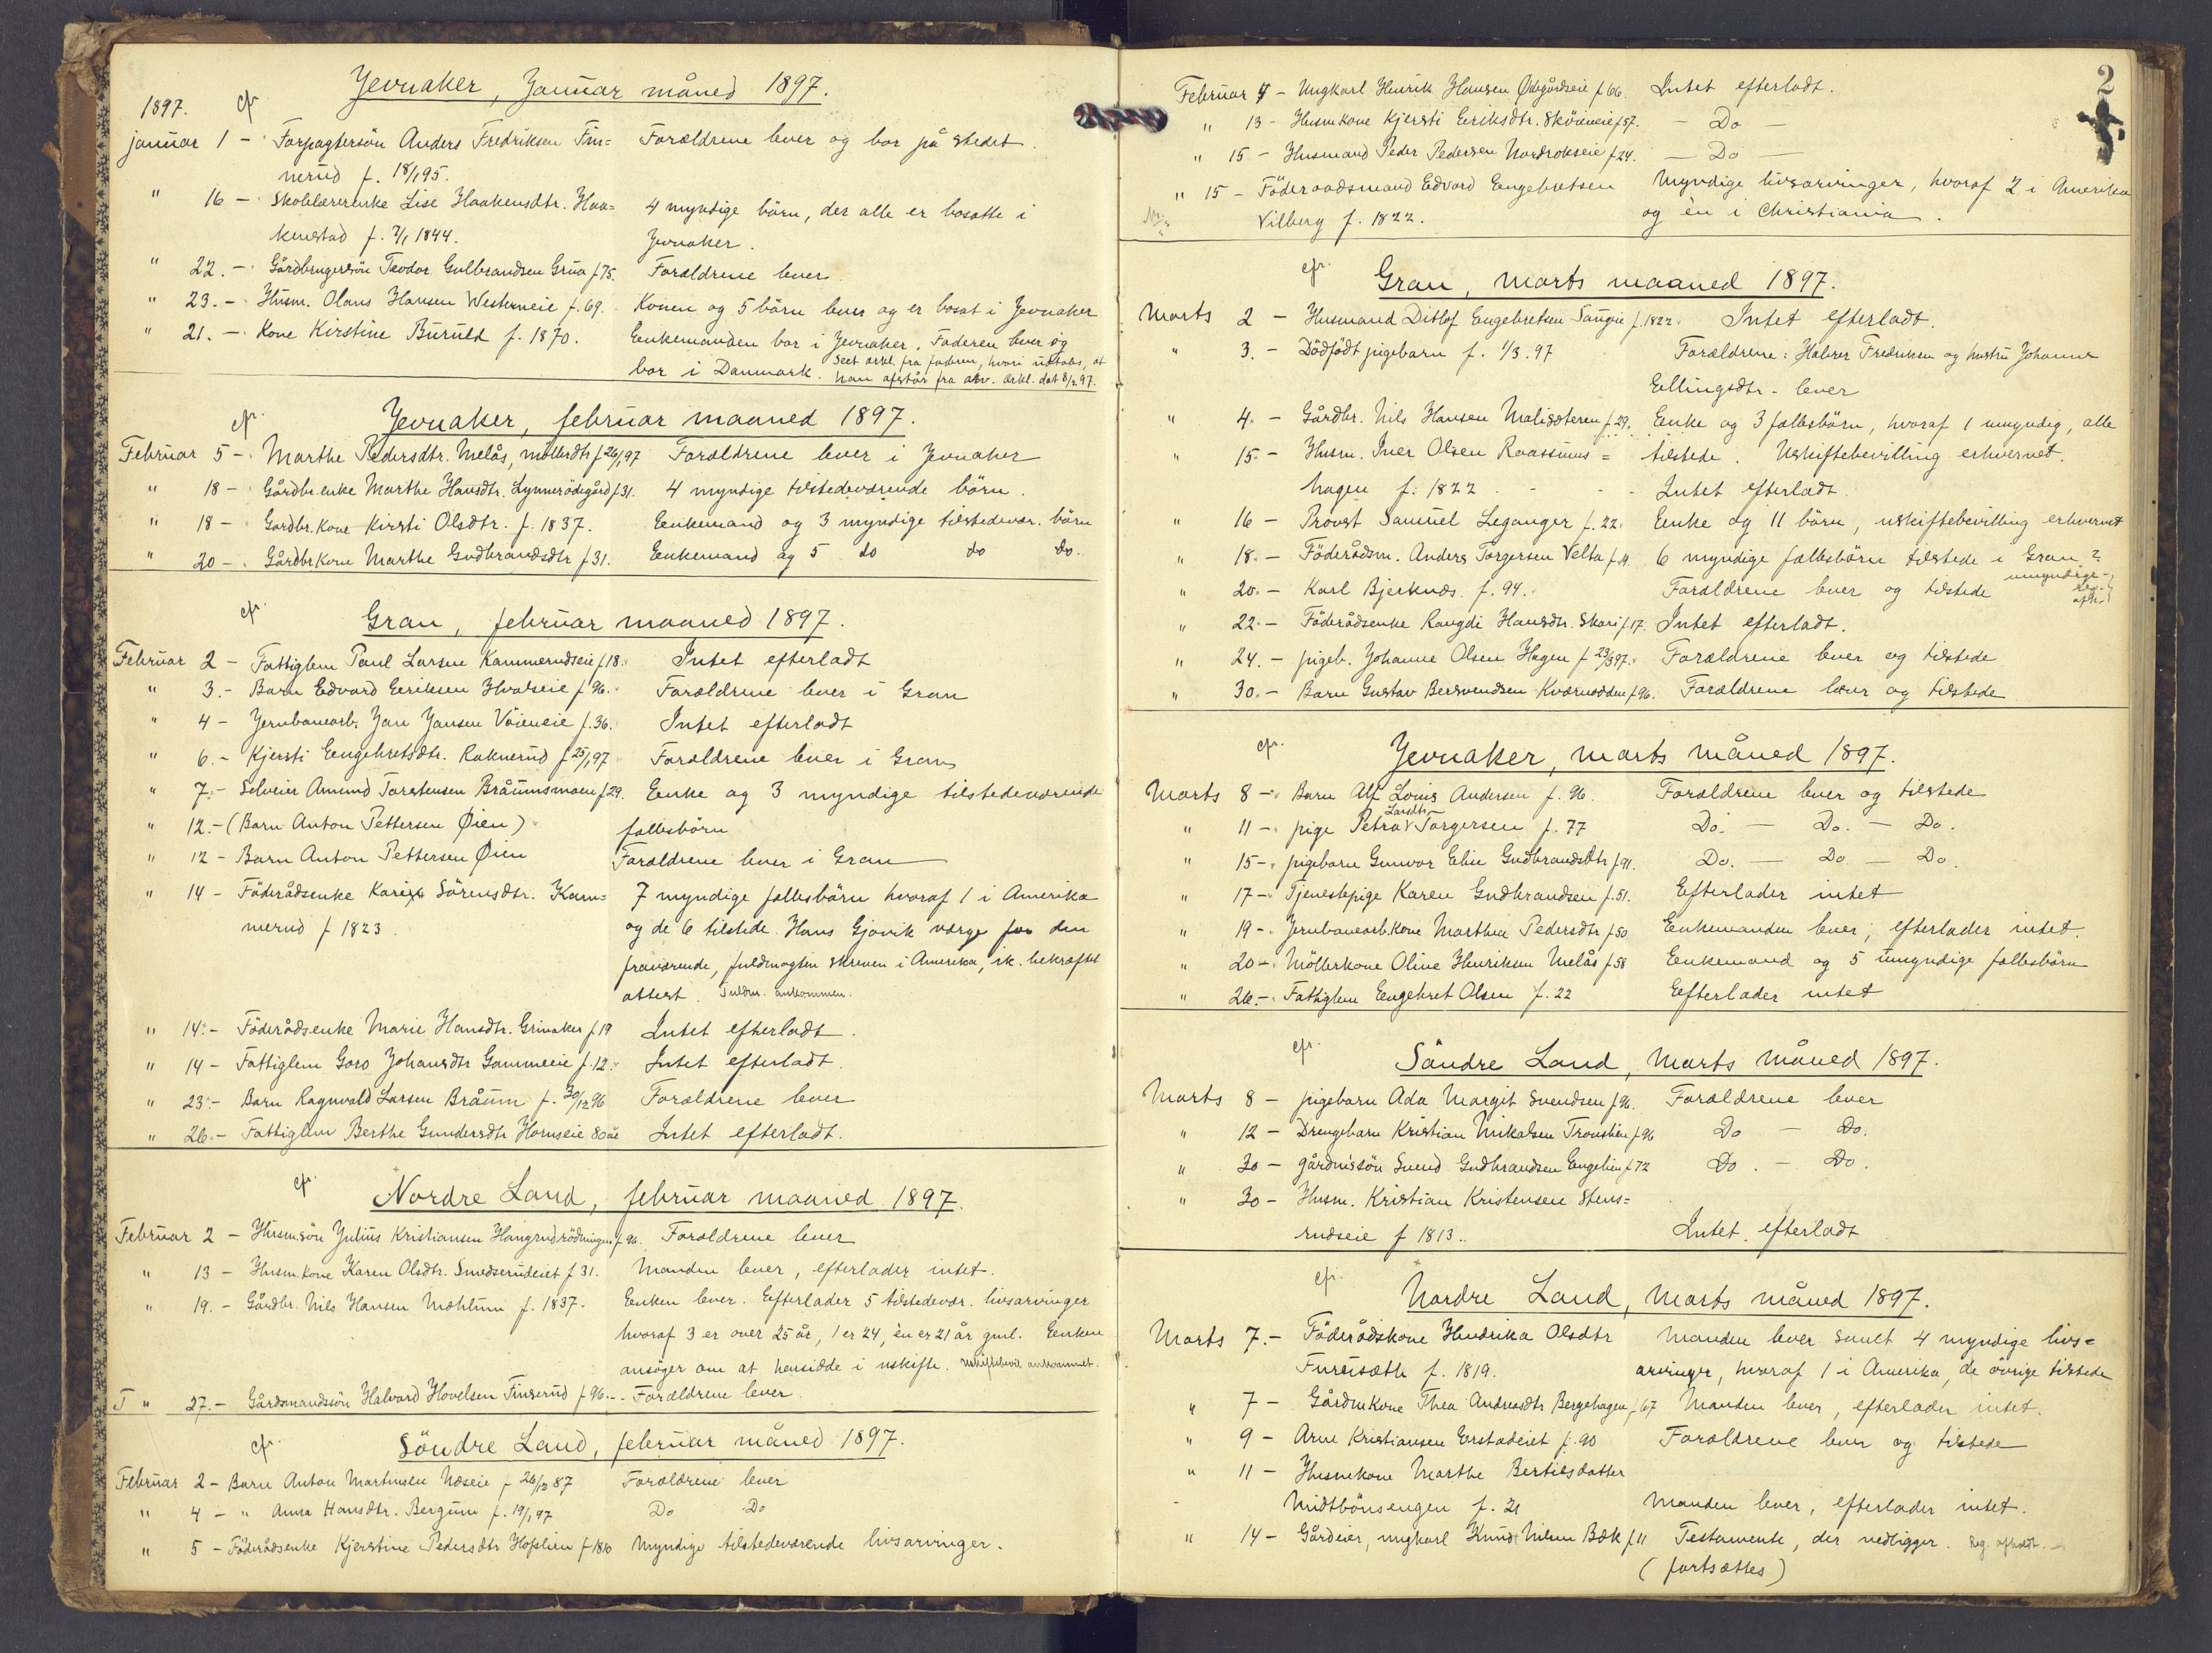 Jevnaker, Januar måned 1897.
1897. cfr
januar 1 - Forpagtersön Anders Fredriksen Fin= Forældrene lever og bor på stedet.
nerud f. 18/1 95.
" 16 - Skolelærerenke Lise Haakensdtr. Haa= 4 myndige börn, der alle er bosatte i
kenstad f. 7/1 1844. Jevnaker.
" 22. - Gårdbrugersön Teodor Gulbrandsen Grua f. 75. Forældrene lever
" 23. - Husm. Olaus Hansen Westerneie f. 69. Konen og 5 börn lever og er bosat i Jevnaker
" 21. - Kone Kirstine Buruld f. 1870. Enkemanden bor i Jevnaker. Faderen lever og
bor i Danmark. Seet erkl. fra faderen, hvori udtales, at
han afstår fra arv. erkl. dat 8/2 97.
cfr. Jevnaker, februar maaned 1897.
Februar 5 - Marthe Pedersdtr. Melås, möllerdtr f 26/1 97 Forældrene lever i Jevnaker
" 18 - Gårdbr.enke Marthe Hansdtr. Lynnerödegård f 31. 4 myndige tilstedeværende börn.
" 18 - Gardbr.kone Kirsti Olsdtr. f. 1837. Enkemand og 3 myndige tilstedevær. börn
" 20 - Gårdbrkone Marthe Gudbrandsdtr f 31. Enkemand og 5 do do do.
cfr. Gran, februar maaned 1897.
Februar 2 - Fattiglem Paul Larsen Kammerudseie f 18. Intet efterladt
" 3. - Barn Edvard Eriksen Hvalseie f 96. Forældrene lever i Gran
" 4 - Jernbanearb. Jan Jansen Vöieneie f. 36. Intet efterladt
" 6. - Kjersti Engebretsdtr. Raknerud f 25/1 97 Forældrene lever i Gran
" 7. - Selveier Amund Torstensen Bråumsmoen f 29. Enke og 3 myndige tilstedeværende
" 12. - (Barn Anton Pettersen Øien) fællesbörn
" 12 - Barn Anton Pettersen Øien Forældrene lever i Gran
" 14 - Föderådsenke Kari Sörensdtr. Kam= 7 myndige fællesbörn hvoraf 1 i Amerika
merud f 1823. og de 6 tilstede. Hans Gjövik værge for den
fraværende, fuldmagten skreven i Amerika, ik. bekræftet
attest. Fuldm. ankommen.
" 14. - Föderådsenke Marie Hansdtr. Grinaker f 19 Intet efterladt.
" 14 - Fattiglem Goro Johansdtr Gammeie f. 12. Intet efterladt.
" 23. - Barn Ragnvald Larsen Bråum f. 30/12 96 Forældrene lever
" 26. - Fattiglem Berthe Gundersdtr Hornseie 80 år Intet efterladt.
cfr. Nordre Land, februar maaned 1897.
Februar 2 - Husm.sön Julius Kristiansen Haugrudrödningen f 96. Forældrene lever
" 13 - Husm.kone Karen Olsdtr. Smedserudeiet f 31. Manden lever, efterlader intet.
" 19. - Gårdbr. Nils Hansen Mæhlum f. 1837. Enken lever. Efterlader 5 tilstedevær. livsarvinger
hvoraf 3 er over 25 år, 1 er 24, én er 21 år gml. Enken
ansöger om at hensidde i uskifte. uskiftebevil. ankommet.
T " 27. - Gårdmandssön Halvard Hovelsen Finserud f 96. - Forældrene lever.
cfr. Söndre Land, februar måned 1897.
Februar 2 - Barn Anton Martinsen Næseie f 26/12 87 Forældrene lever
" 4 - " Anna Hansdtr. Bergum f. 19/1 97 Do Do
" 5 - Föderådsenke Kjerstine Pedersdtr Hofslien f 1810 Myndige tilstedeværende livsarvinger.
2
Februar 4 - Ungkarl Henrik Hansen Ødegårdseie f 66. Intet efterladt.
" 13 - Husmkone Kjersti Eriksdtr. Sköieneie f 57. - Do -
" 15 - Husmand Peder Pedersen Nordrokseie f 24. - Do -
" 15 - Föderaadsmand Edvard Engebretsen Myndige livsarvinger, hvoraf 2 i Amerika
Vilberg f. 1822. og én i Christiania.
cfr. Gran, marts maaned 1897.
Marts 2 - Husmand Ditlof Engebretsen Saugeie f. 1822. Intet efterladt.
" 3. - Dödfödt pigebarn f. 1/3. 97 Forældrene: Halvor Fredriksen og hustru Johanne
Ellingsdtr. lever
" 4. - Gårdbr. Nils Hansen Molisæteren f. 29. Enke og 3 fællesbörn, hvoraf 1 umyndig, alle
" 15. - Husm. Iver Olsen Raassums= tilstede. Uskiftebevilling erhvervet.
hagen f. 1822. - - - Intet efterladt.
" 16 - Provst Samuel Leganger f. 22. Enke og 11 börn, uskiftebevilling erhvervet
" 18. - Föderådsm. Anders Torgersen Velta f. 19. 6 myndige fællesbörn tilstede i Gran ?
" 20. - Karl Bjerknæs. f. 94. Forældrene lever og tilstede umyndige-
" 22. - Föderådsenke Rangdi Hansdtr. Skari f. 17. Intet efterladt.
" 24. - pigeb. Johanne Olsen Hagen f 23/3 97. Forældrene lever og tilstede
" 30. - Barn Gustav Bersvendsen Kværnodden f 96. Forældrene lever og tilstede
cfr. Jevnaker, marts måned 1897.
Marts 8 - Barn Alf Louis Andersen f. 96. Forældrene lever og tilstede
" 11 - pige Petra Larsdtr Torgersen f. 77 Do. - Do. - Do.
" 15 - pigebarn Gunvor Elise Gudbrandsdtr f 91. Do. - Do. - Do.
" 17 - Tjenestepige Karen Gudbrandsen f. 51. Efterlader intet
" 19 - Jernbanearb.kone Marthea Pedersdtr f 50. Enkemanden lever, efterlader intet.
" 20 - Möllerkone Oline Henriksen Melås f 58 Enkemand og 5 umyndige fællesbörn
" 26. - Fattiglem Engebret Olsen f. 22 Efterlader intet
cfr. Söndre Land, Marts måned 1897.
Marts 8 - pigebarn Ada Margit Svendsen f 96. Forældrene lever
" 12 - Drengebarn Kristian Mikalsen Tronslien f 96 Do - Do.
" 30 - gårdmssön Svend Gudbrandsen Engelien f 72 Do. - Do.
" 30 - Husm. Kristian Kristensen Stens=
rudseie f 1813.. Intet efterladt
cfr. Nordre Land, Marts måned 1897.
Marts 7. - Föderådskone Hendrika Olsdtr Manden lever samt 4 myndige livs=
Furusæth f. 1819. arvinger, hvoraf 1 i Amerika, de övrige tilstede
" 7 - Gårdmkone Thea Andreasdtr Bergehagen f 67 Manden lever, efterlader intet.
" 9 - Arne Kristiansen Erstadeiet f. 90 Forældrene lever og tilstede
" 11 - Husmkone Marthe Bertilsdatter
Midtbönsengen f. 21 Manden lever, efterlader intet.
" 14 - Gårdeier, ungkarl Knud Nilsen Bæk f 11 Testamente, der nedligger. Reg. afholdt.
(fortsættes)